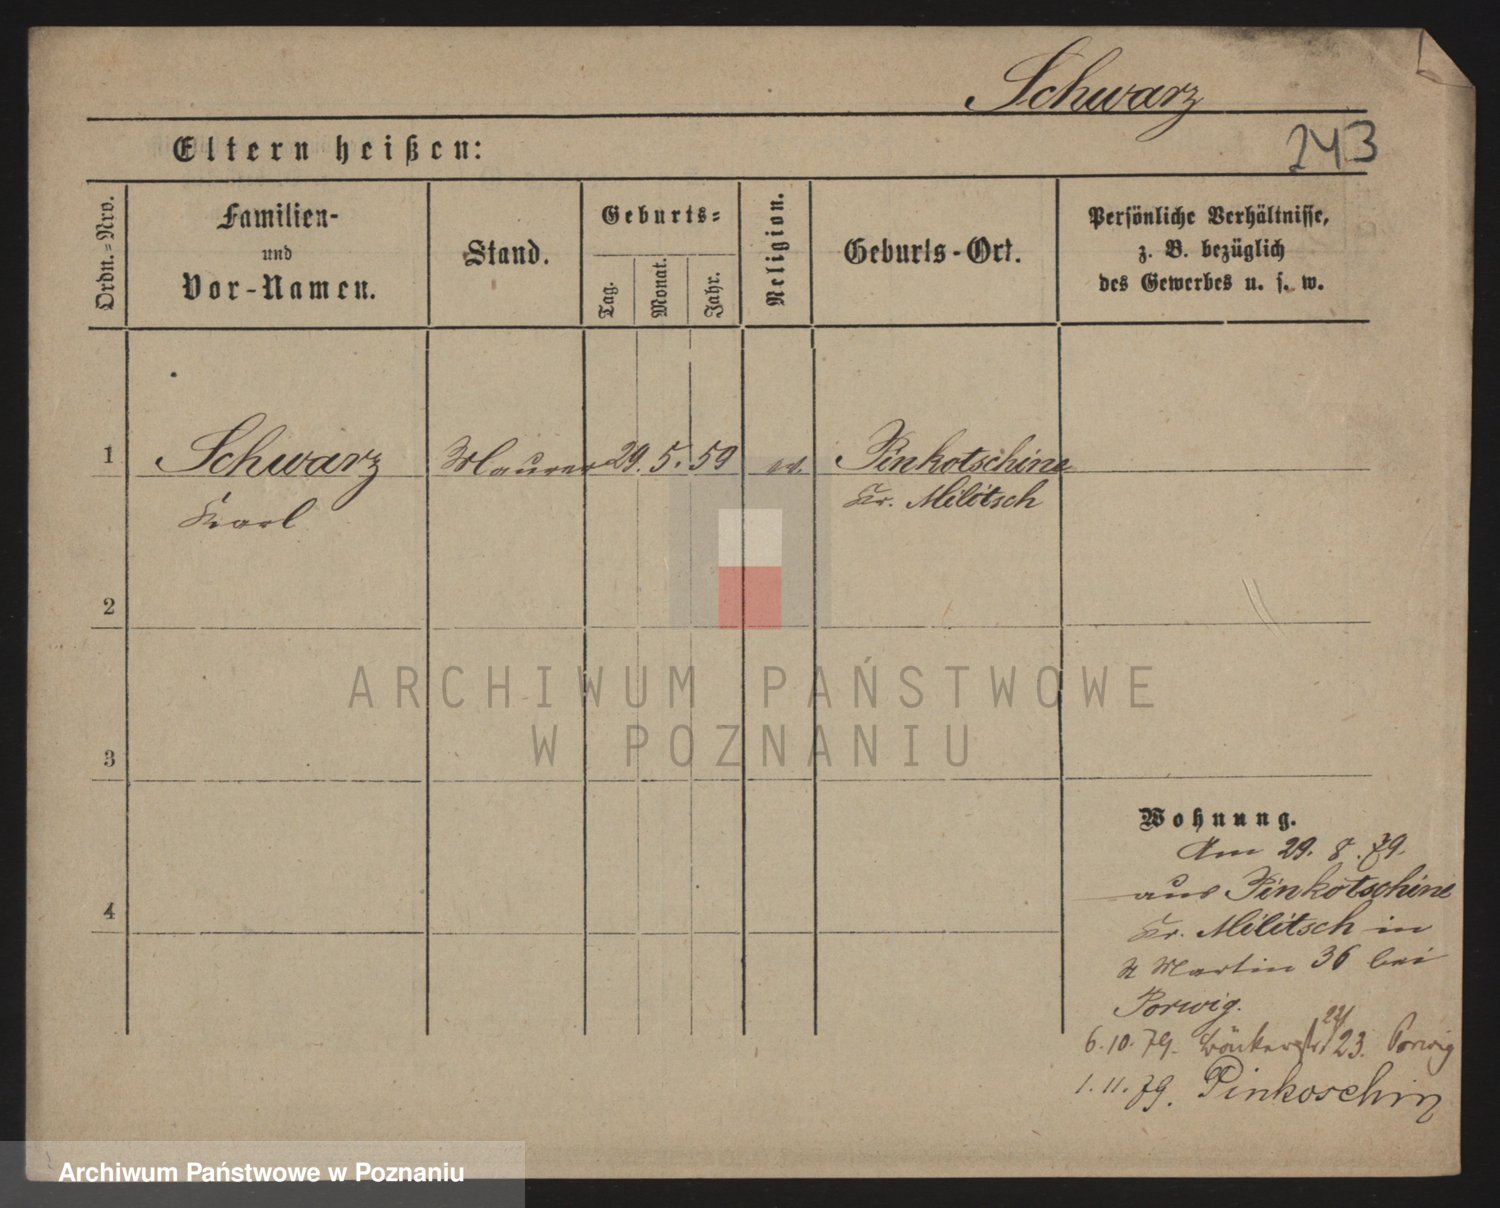 Schwarz
243
Eltern heißen:
Ordn.=Nro.
Familien-
und
Vor-Namen.
Stand.
Geburts=
Tag.
Monat.
Jahr.
Religion.
Geburts-Ort.
Persönliche Verhältnisse,
z. B. bezüglich
des Gewerbes u. s. w.
1
Schwarz
Karl
Maurer
29. 5. 59
ev.
Pinkotschine
Kr. Militsch
2
3
4
Wohnung.
Am 29. 8. 79.
aus Pinkotschine
Kr. Militsch in
St Martin 36 bei
Porwig.
6.10.79. 22/23. Porwig
1.11.79. Pinkoschin
ARCHIWUM PAŃSTWOWE
W POZNANIU
Archiwum Państwowe w Poznaniu